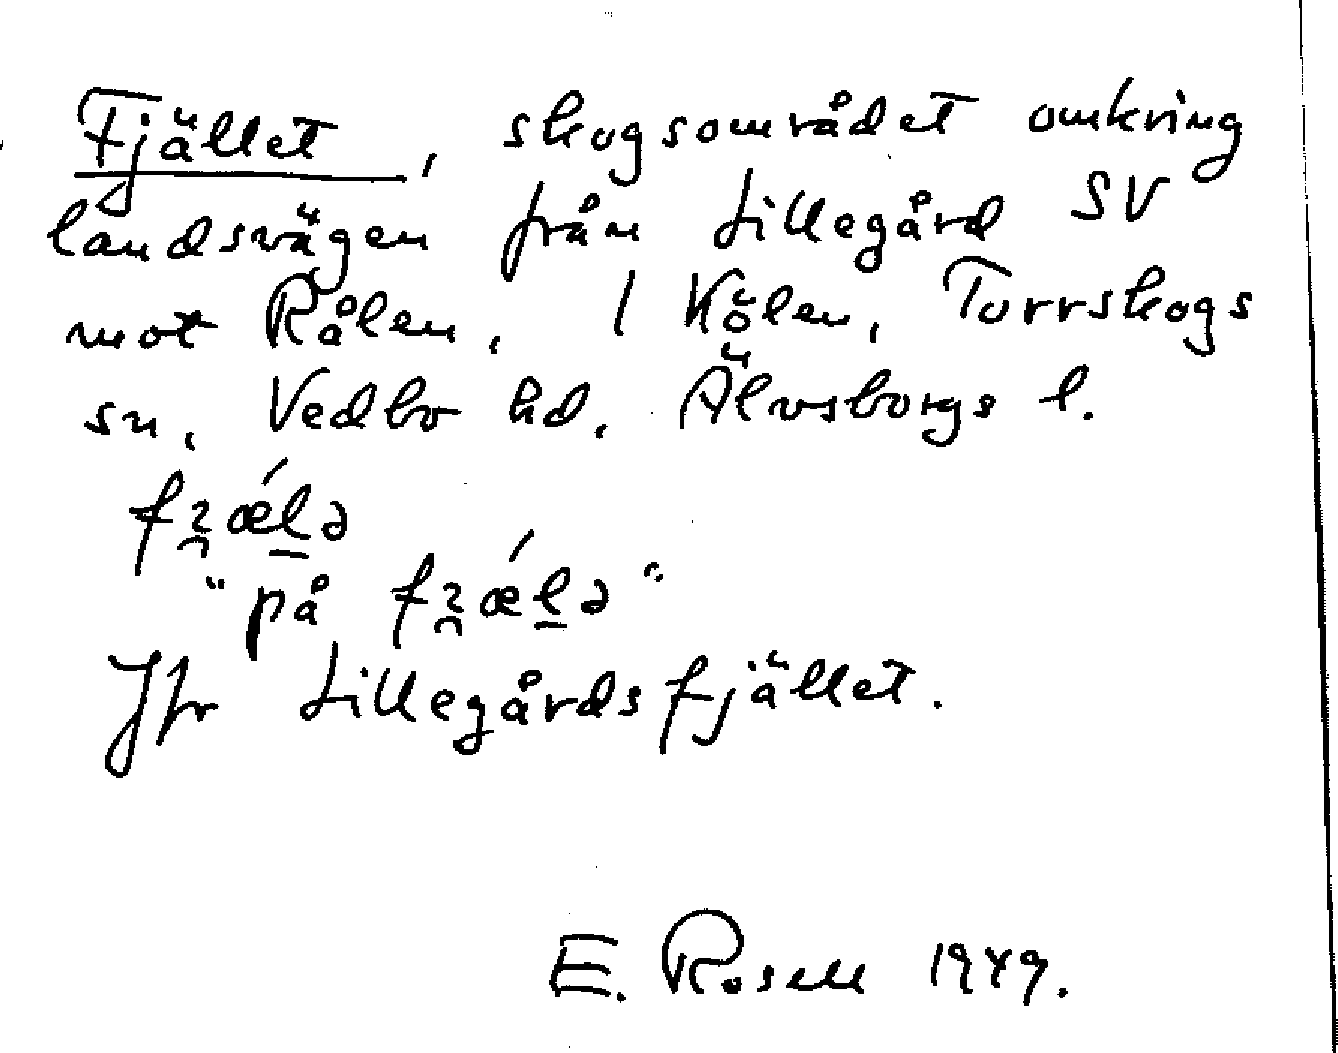 Fjället, skogsområdet omkring
landsvägen från Lillegård SV
mot Rålen, I Kölen, Torrskogs
sn, Vedbo hd, Älvsborgs l.
fɿ̯ǽl̠ə
"på fɿ̯ǽl̠ə"
Jfr Lillegårdsfjället.
E. Rosell 1949.